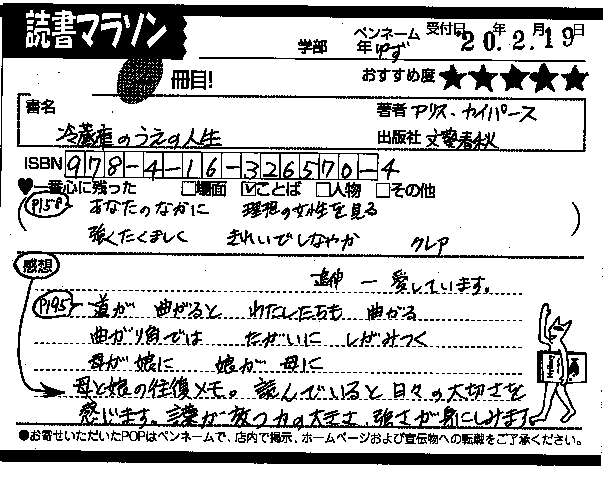 読書マラソン
学部 年 ペンネーム ゆず 受付日 '20年 2月 19日
冊目! おすすめ度 ★★★★★
書名 冷蔵庫のうえの人生
著者 アリス・カイパース
出版社 文藝春秋
ISBN 978-4-16-326570-4
♥一番心に残った □場面 ☑ことば □人物 □その他
(P158 あなたのなかに 理想の女性を見る
強くたくましく きれいでしなやか クレア )
感想
追伸 — 愛しています。
P195 道が 曲がると わたしたちも 曲がる
曲がり角では たがいに しがみつく
母が 娘に 娘が 母に
母と娘の往復メモ。読んでいると日々の大切さを
感じます。言葉が放つ力の大きさ、強さが身にしみます。
●お寄せいただいたPOPはペンネームで、店内で掲示、ホームページおよび宣伝物への転載をご了承ください。